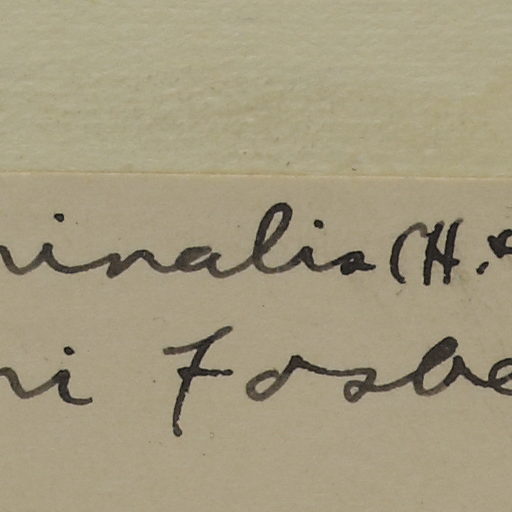 inalis (H. &
ri Fosbe